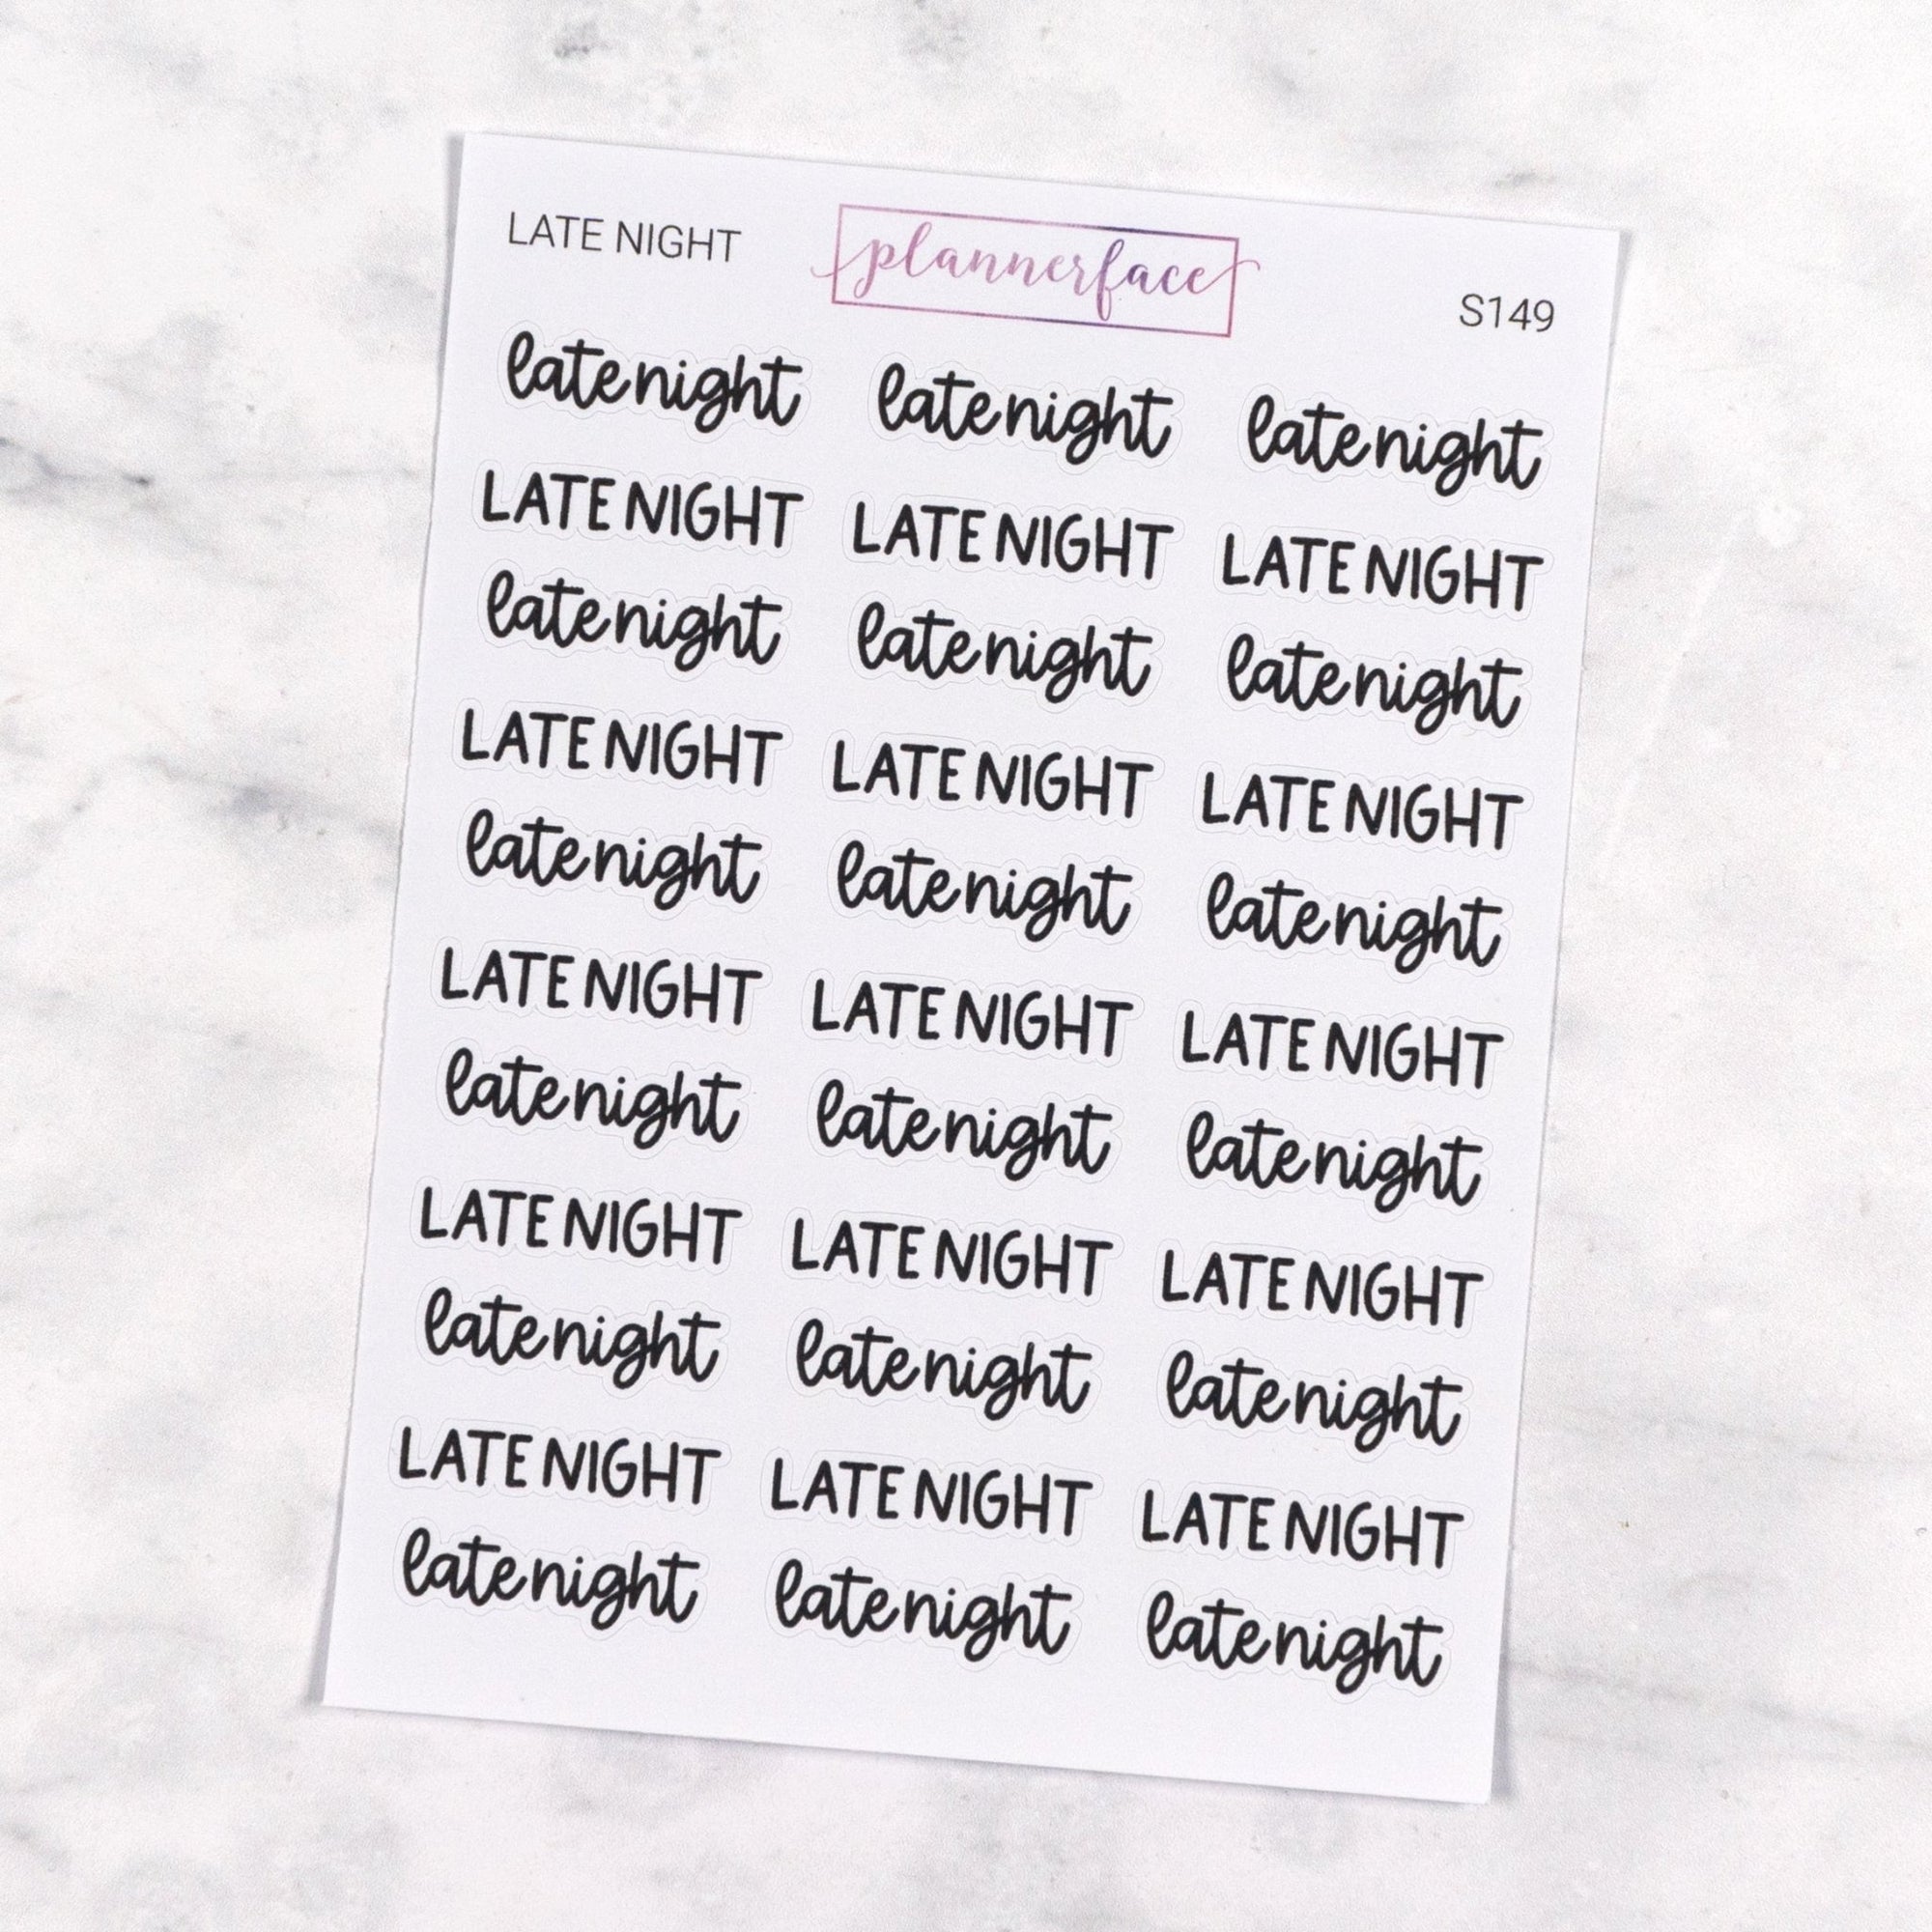 LATE NIGHT plannerface S149
late night late night late night
LATE NIGHT LATE NIGHT LATE NIGHT
late night late night late night
LATE NIGHT LATE NIGHT LATE NIGHT
late night late night late night
LATE NIGHT LATE NIGHT LATE NIGHT
late night late night late night
LATE NIGHT LATE NIGHT LATE NIGHT
late night late night late night
LATE NIGHT LATE NIGHT LATE NIGHT
late night late night late night